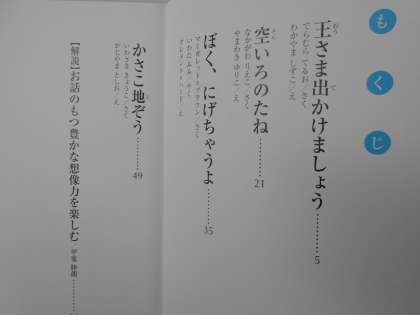 もくじ
王さま出かけましょう………5
てらむら てるお さく
わかやま しずこ/え
空いろのたね………21
なかがわ りえこ/さく
やまわき ゆりこ/え
ぼく、にげちゃうよ………35
マーガレット・ブラウン さく
いわた みみ やく
クレメント・ハード え
かさこ地ぞう………49
いわさき きょうこ さく
かじやま としお/え
【解説】お話のもつ豊かな想像力を楽しむ